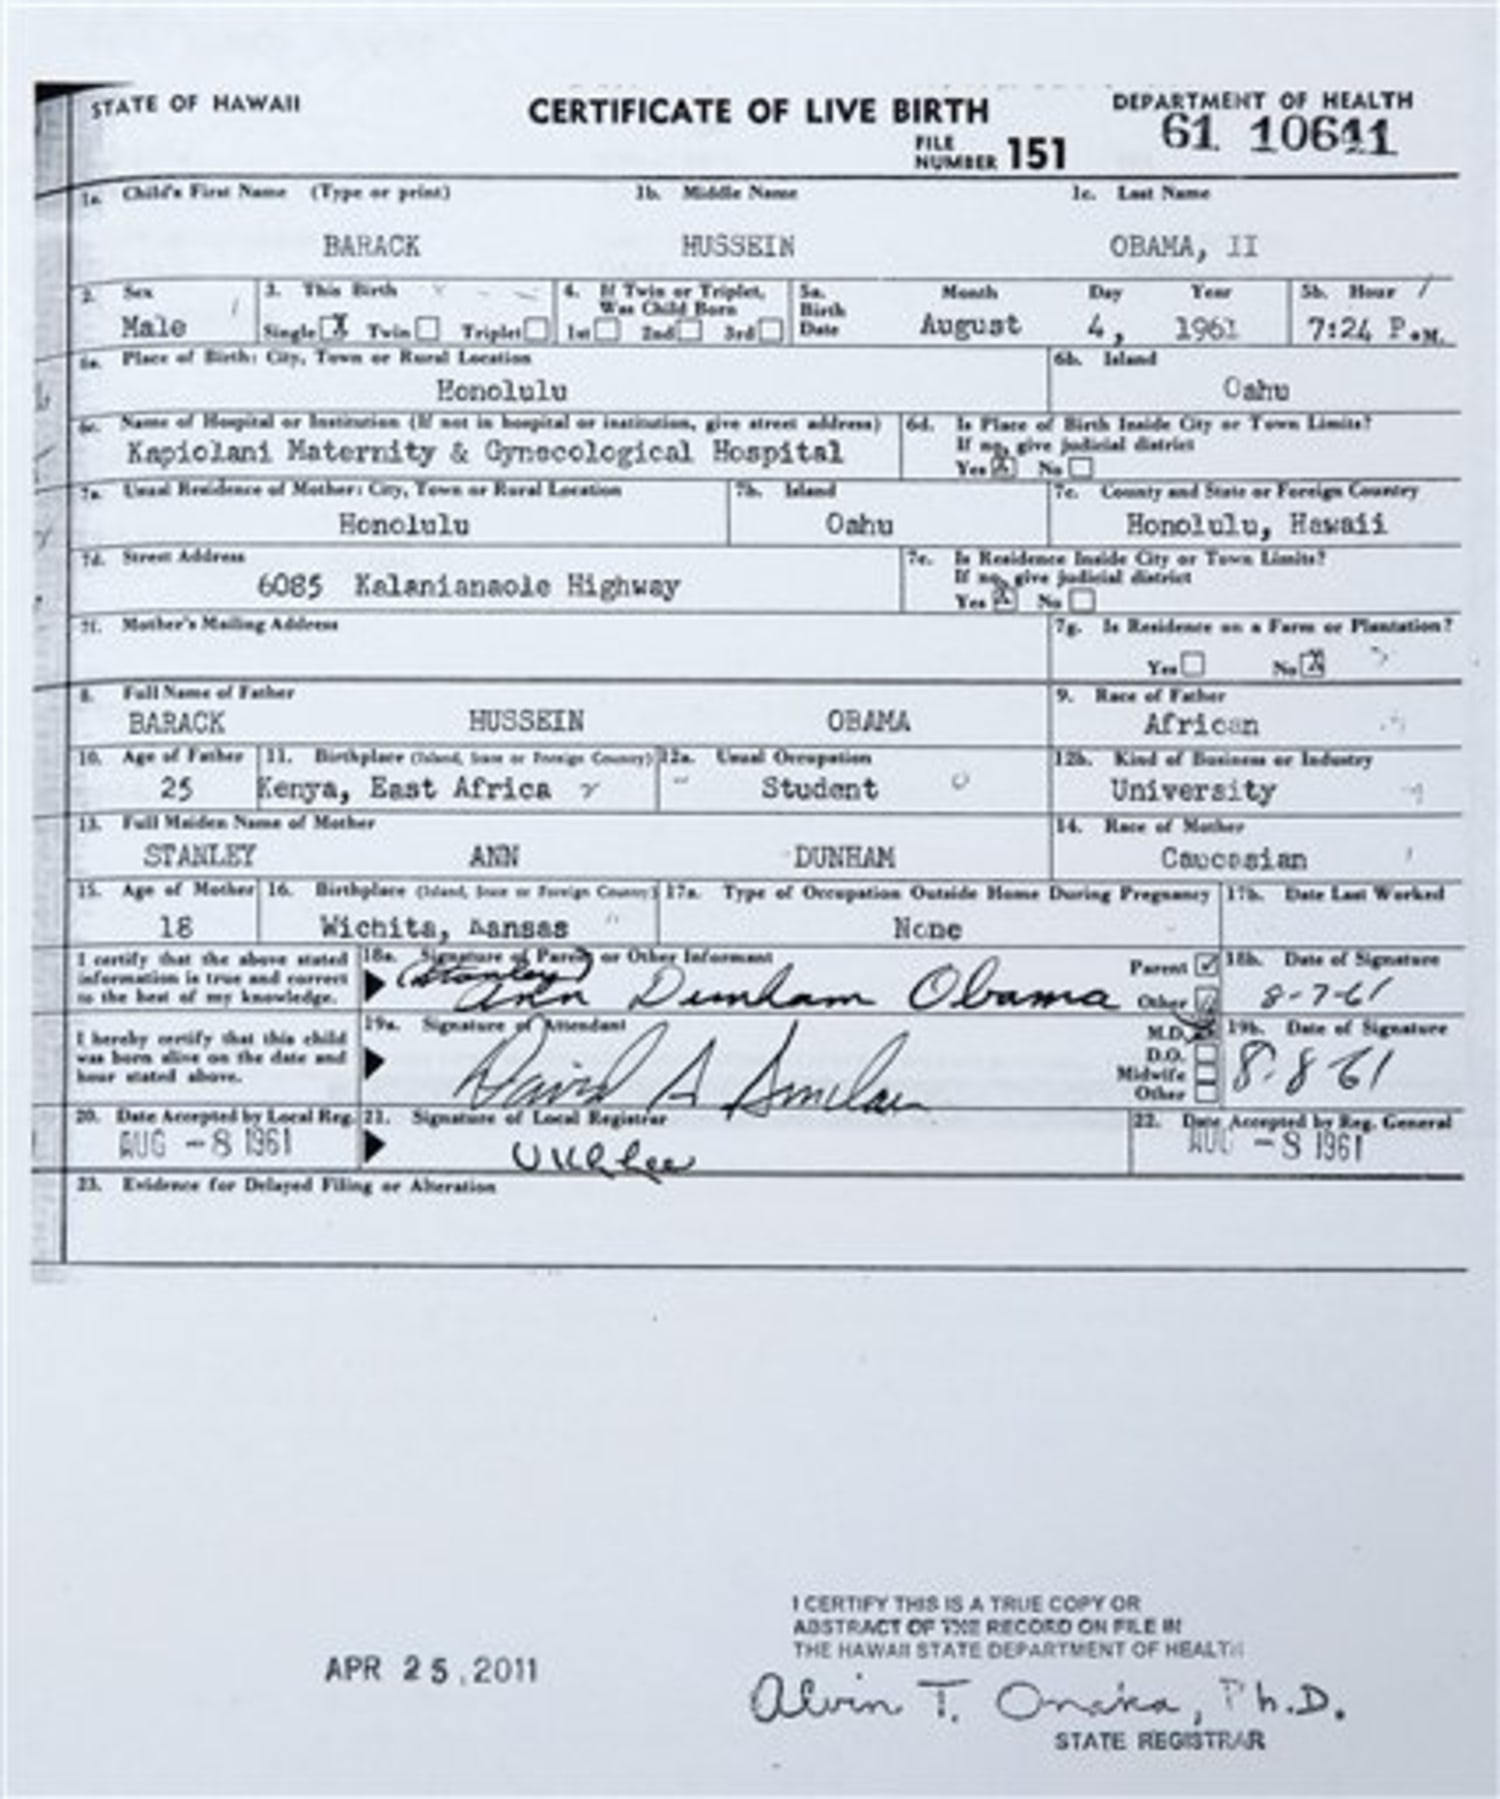 STATE OF HAWAII CERTIFICATE OF LIVE BIRTH DEPARTMENT OF HEALTH
FILE NUMBER 151 61 10641
1a. Child's First Name (Type or print) 1b. Middle Name 1c. Last Name
BARACK HUSSEIN OBAMA, II
2. Sex 3. This Birth 4. If Twin or Triplet, Was Child Born 5a. Birth Date Month Day Year 5b. Hour
Male Single X Twin Triplet 1st 2nd 3rd August 4, 1961 7:24 P.M.
6a. Place of Birth: City, Town or Rural Location 6b. Island
Honolulu Oahu
6c. Name of Hospital or Institution (If not in hospital or institution, give street address) 6d. Is Place of Birth Inside City or Town Limits?
If no, give judicial district
Kapiolani Maternity & Gynecological Hospital Yes X No
7a. Usual Residence of Mother: City, Town or Rural Location 7b. Island 7c. County and State or Foreign Country
Honolulu Oahu Honolulu, Hawaii
7d. Street Address 7e. Is Residence Inside City or Town Limits?
If no, give judicial district
6085 Kalanianaole Highway Yes X No
7f. Mother's Mailing Address 7g. Is Residence on a Farm or Plantation?
Yes No X
8. Full Name of Father 9. Race of Father
BARACK HUSSEIN OBAMA African
10. Age of Father 11. Birthplace (Island, State or Foreign Country) 12a. Usual Occupation 12b. Kind of Business or Industry
25 Kenya, East Africa Student University
13. Full Maiden Name of Mother 14. Race of Mother
STANLEY ANN DUNHAM Caucasian
15. Age of Mother 16. Birthplace (Island, State or Foreign Country) 17a. Type of Occupation Outside Home During Pregnancy 17b. Date Last Worked
18 Wichita, Kansas None
I certify that the above stated information is true and correct to the best of my knowledge. 18a. Signature of Parent or Other Informant Parent Other 18b. Date of Signature
(Stanley) Ann Dunham Obama 8-7-61
I hereby certify that this child was born alive on the date and hour stated above. 19a. Signature of Attendant M.D. D.O. Midwife Other 19b. Date of Signature
David A Sinclair 8-8-61
20. Date Accepted by Local Reg. 21. Signature of Local Registrar 22. Date Accepted by Reg. General
AUG -8 1961 AUG -8 1961
23. Evidence for Delayed Filing or Alteration
I CERTIFY THIS IS A TRUE COPY OR
ABSTRACT OF THE RECORD ON FILE IN
THE HAWAII STATE DEPARTMENT OF HEALTH
APR 25, 2011
Alvin T. Onaka, Ph.D.
STATE REGISTRAR